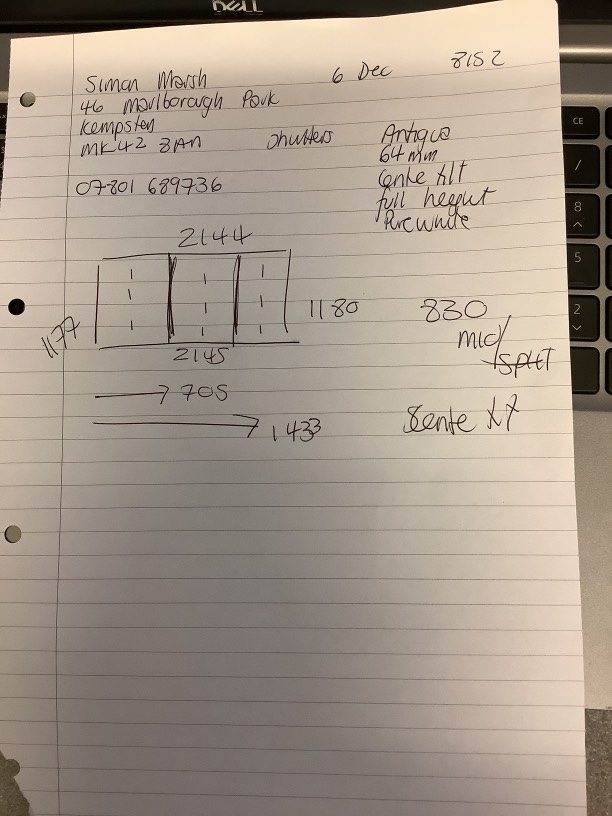 DELL
Simon Marsh
6 Dec
8152
46 Marlborough Park
Kempston
MK42 8AN
Shutters
Antigua
64mm
Centre tilt
full height
Pure White
07801 689736
2144
1177
1180
2145
830
mid/
SPLIT
705
1433
Centre
CE
/
8
5
2